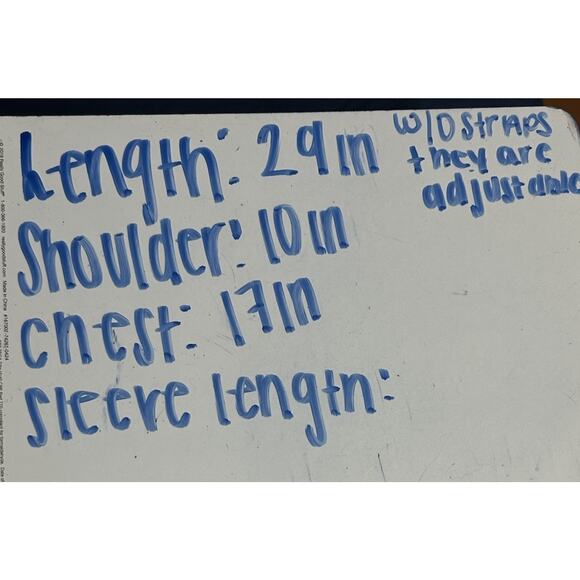 Length: 29in
w/o straps
they are
adjustable
Shoulder: 10in
chest: 17in
Sleeve length: